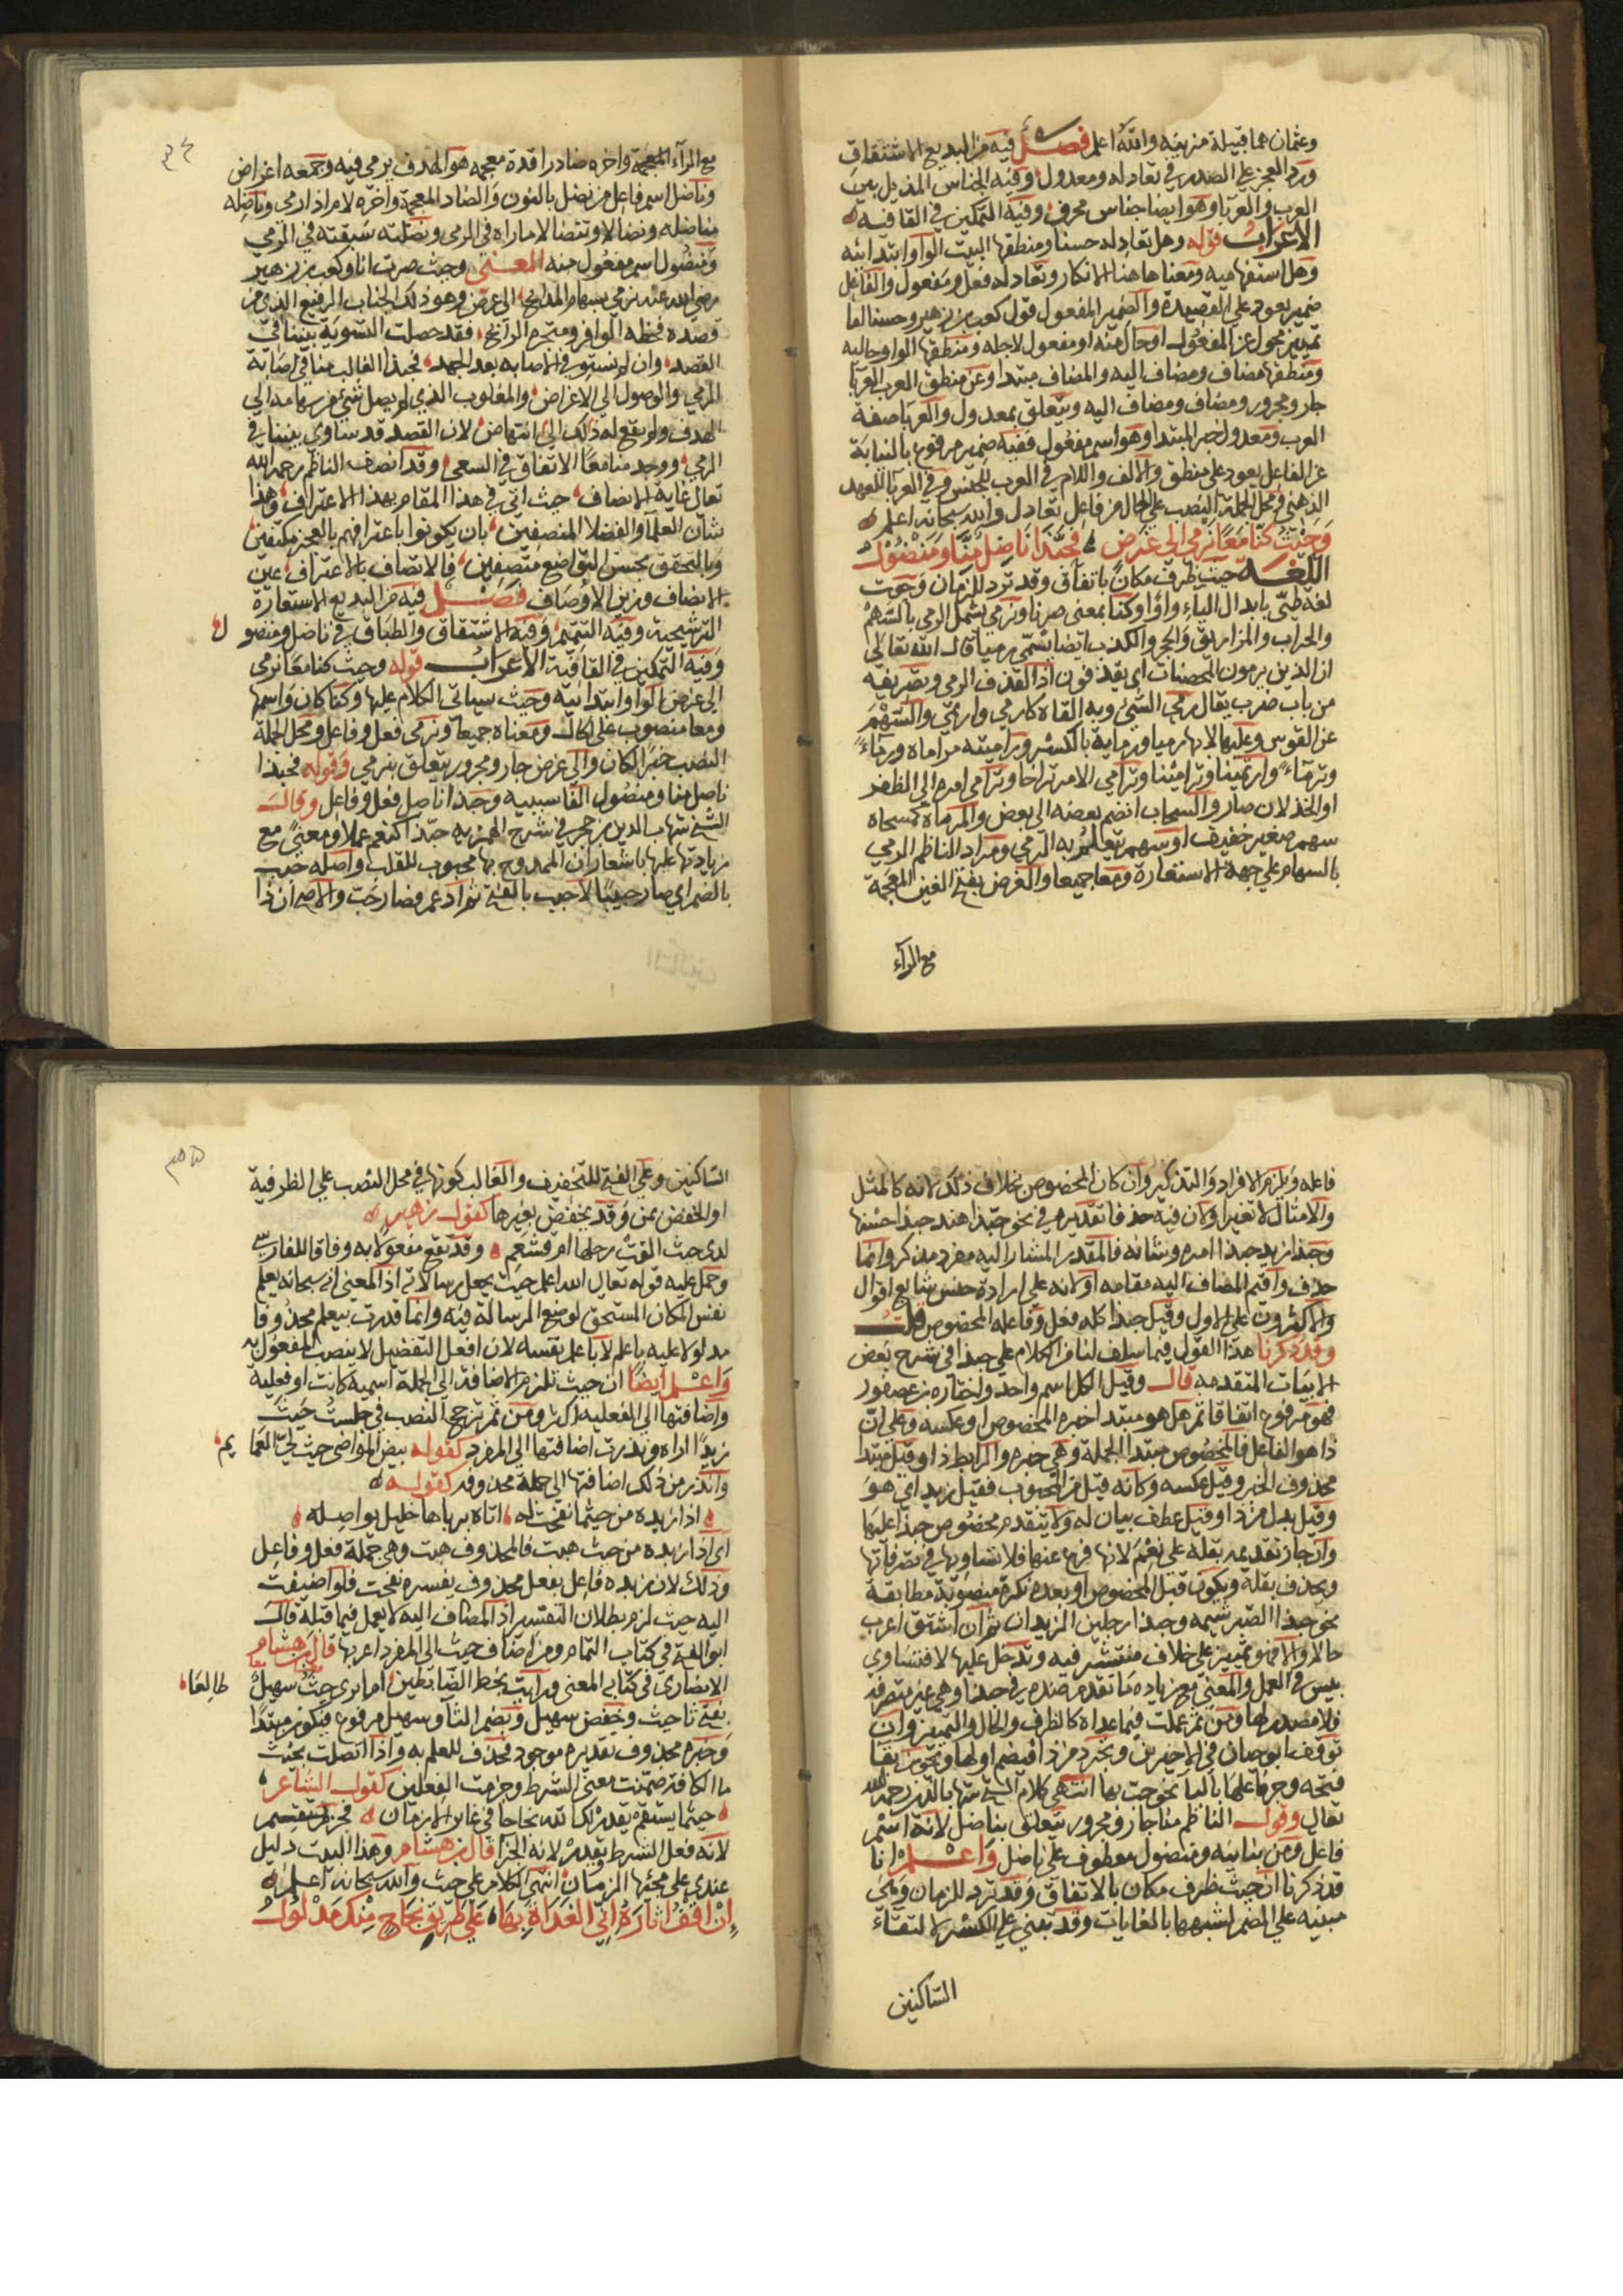 وعثمان هما قبيلة مزينه والله اعلم فصل فيه من البديع الاشتقاق
ورد العجز على الصدر في تعادله ومعدول وفيه الجناس المذيل بين
العرب والعربا وهو ايضا جناس محرف وفيه التمكين في القافيه
الاعراب قوله وهل تعادله حسنا ومنطقها البيت الواو ابتدائه
وهل استفهاميه ومعناها هنا الانكار وتعادله فعل ومفعول والفاعل
ضمير يعود على القصيدة والضمير المفعول قول كعب بن زهير وحسنا اما
تمييز محول عن المفعول او حال منه او مفعول لاجله ومنطقها الواو حاليه
ومنطقها مضاف ومضاف اليه والمضاف مبتدا وعن منطق العرب العربا
جار ومجرور ومضاف ومضاف اليه ويتعلق بمعدول والعربا صفة
العرب ومعدول خبر المبتدا وهو اسم مفعول ففيه ضمير مرفوع بالنيابة
عن الفاعل يعود على منطق والالف واللام في العرب للجنس وفي العربا للعهد
الذهني ومحل الجملة النصب على الحال من فاعل تعادل والله سبحانه اعلم
وحيث كنا معا نرمي الى غرض فحبذا ناضل منا ومنضول
اللغة حيث ظرف مكان باتفاق وقد ترد للزمان وحوث
لغة طيئ بابدال الياء واوا وكنا بمعنى صرنا ونرمي يشمل الرمي بالسهم
والحراب والمزاريق والحجر والكذب ايضا يسمى رميا قال الله تعالى
ان الذين يرمون المحصنات اي يقذفون اذ القذف الرمي وتصريفه
من باب ضرب يقال رمى الشئ وبه القاه كارمى وارتمى والسهم
عن القوس وعليها لا بها رميا ورماية بالكسر وراميته مراماه ورماء
وترماء وارتمينا وترامينا وترامى الامر تراخا وترامى امره الى الظفر
او الخذلان صار والسحاب انضم بعضه الى بعض والمرماة كمسحاه
سهم صغير خفيف او سهم يتعلم به الرمي ومراد الناظم الرمي
بالسهام على جهة الاستعارة ومعا جميعا والغرض بفتح الغين المعجمة
مع الرآء
٣٤
مع الرآء المعجمة واخره ضاد راقدة معجمه هو الهدف يرمى فيه وجمعه اغراض
وناضل اسم فاعل من نضل بالنون والضاد المعجمة واخره لام اذا رمى وناضله
مناضله ونضالا وتنضالا باراه في الرمي ونضلته سبقته في الرمي
ومنضول اسم مفعول منه المعنى وحيث صرت انا وكعب بن زهير
رضي الله عنه نرمي بسهام المدايح الى غرض وهو ذلك الجناب الرفيع الذي من
قصده فحظه الوافر ومتجره الرابح فقد حصلت التسوية بيننا في
القصد وان لم نستو في الاصابه بعد الجهد فحبذا الغالب منا في اصابة
الرمي والوصول الى الاغراض والمغلوب الذي لم يصل شئ من سهامه الى
الهدف ولم يقع له ذلك الى انتهاض لان القصد قد تساوي بيننا في
الرمي ووجد منا معا الاتفاق في السعي وقد انصف الناظم رحمه الله
تعالى غاية الانصاف حيث اتى في هذا المقام بهذا الاعتراف وهذا
شان العلما والفضلا المنصفين بان يكونوا باعترافهم بالعجز مكتفين
وبالتحقق بحسن التواضع متصفين فالاتصاف بالاعتراف عين
الانصاف وزين الاوصاف فصل فيه من البديع الاستعارة
الترشيحية وفيه التتميم وفيه الاشتقاق والطباق في ناضل ومنضو ل
وفيه التمكين في القافية الاعراب قوله وحيث كنا معا نرمي
الى غرض الواو ابتدائيه وحيث سياتي الكلام عليها وكنا كان واسمها
ومعا منصوب على الحال ومعناه جميعا ونرمي فعل وفاعل ومحل الجملة
النصب خبر الكان والى غرض جار ومجرور يتعلق بنرمي وقوله فحبذا
ناضل منا ومنضول الفا سببيه وحبذا ناضل فعل وفاعل وقال
الشيخ شهاب الدين بن حجر في شرح الهمزيه حبذا كنعم عملا ومعنى مع
زيادتها عليها باشعار ان الممدوح بها محبوب للقلب واصله حبب
بالضم اي صار حبيبا لا حبب بالفتح ثم ادغم فصار حب والاصح ان ذا
فاعله ويلزم الافراد والتذكير وان كان المخصوص بخلاف ذلك لانه كالمثل
والامثال لا تغير او كان فيه حذفا تقديره في نحو حبذا هند حبذا حسنها
وحبذا زيد حبذا امره وشانه فالمقدر المشار اليه مفرد مذكر وانما
حذف واقيم المضاف اليه مقامه او لانه على ارادة جنس شايع اقوال
والاكثرون على الاول وقيل حبذا كله فعل وفاعله المخصوص قلت
وقد ذكرنا هذا القول فيما سلف لنا من الكلام على حبذا في شرح بعض
الابيات المتقدمه قال وقيل الكل اسم واحد واختاره بن عصفور
فهو مرفوع اتفاقا ثم هل هو مبتدا خبره المخصوص او عكسه وعلى ان
ذا هو الفاعل فالمخصوص مبتدا الجملة وهي خبره والرابط ذا وقيل مبتدا
محذوف الخبر وقيل عكسه وكانه قيل من المحبوب فقيل زيد اي هو
وقيل بدل من ذا وقيل عطف بيان له ولا يتقدم مخصوص حبذا عليها
وان جاز تقديمه بقلة على نعم لانها فرع عنها فلا تساويها في تصرفاتها
ويحذف بقلة ويكون قبل المخصوص او بعده نكرة منصوبة مطابقة
نحو حبذا الصبر شيمه وحبذا رجلين الزيدان ثم ان اشتق اعرب
حالا والا فهو تمييز على خلاف منتشر فيه وتدخل عليها لا فتساوي
بيس في العمل والمعنى مع زياده ما تقدم ضده في حبذا وهي غير متصرفه
فلا مصدر لها ومن ثم عملت فيما عداه كالظرف والحال والتمييز وان
توقف ابو حيان في الاخيرين وتجرد من ذا فيضم اولها ويجوز بقا
فتحه وجر فاعلها بالبا نحو حب بها انتهى كلام الشيخ شهاب الدين رحمه الله
تعالى وقول الناظم منا جار ومجرور يتعلق بناضل لانه اسم
فاعل ومن بيانيه ومنضول معطوف على ناضل واعلم انا
قد ذكرنا ان حيث ظرف مكان بالاتفاق وقد ترد للزمان وهي
مبنيه على الضم لشبهها بالغايات وقد تبنى على الكسر لالتقاء
الساكنين
٣٥
الساكنين وعلى الفتح للتخفيف والغالب كونها في محل النصب على الظرفية
او الخفض بمن وقد يخفض بغيرها كقول زهير
لدى حيث القت رحلها ام قشعم وقد تقع مفعولا به وفاقا للفارسي
وحمل عليه قوله تعالى الله اعلم حيث يجعل رسالاته اذ المعنى انه سبحانه يعلم
نفس المكان المستحق لوضع الرسالة فيه وانما قدرت بيعلم محذوفا
مدلولا عليه باعلم لا باعلم نفسه لان افعل التفضيل لا ينصب المفعول به
واعلم ايضا ان حيث تلزم الاضافة الى الجملة اسمية كانت او فعلية
واضافتها الى الفعليه اكثر ومن ثم ترجح النصب في جلست حيث
زيدا اراه وندرت اضافتها الى المفرد كقوله ببيض المواضي حيث لي العما يم
واندر من ذلك اضافتها الى جملة محذوفه كقوله
اذا ريدة من حيثما نفحت له اتاه برياها خليل يواصله
اي اذا ريدة من حيث هبت فالمحذوف هبت وهي جملة فعل وفاعل
وذلك لان ريدة فاعل بفعل محذوف يفسره نفحت فلو اضيفت
اليه حيث لزم بطلان التفسير اذ المضاف اليه لا يعمل فيما قبله قال
ابو الفتح في كتاب التمام ومن اضاف حيث الى المفرد اعربها قال بن هشام
الانصاري في كتابه المغني ورايت بخط الضابطين اما ترى حيث سهيل طالعا
بفتح ثا حيث وخفض سهيل وبضم الثا وسهيل مرفوع فيكون مبتدا
وخبره محذوف تقديره موجود فحذف للعلم به واذا اتصلت بحيث
ما الكافة ضمنت معنى الشرط وجزمت الفعلين كقول الشاعر
حيثما يستقم يقدر لك الله نجاحا في غابر الازمان فجزم يستقم
لانه فعل الشرط يقدر لانه الجزا قال بن هشام وهذا البيت دليل
عندي على مجيئها للزمان انتهى الكلام على حيث والله سبحانه اعلم
ان اقف اثاره اني الغداة بها على طريق نجاح منك مدلول